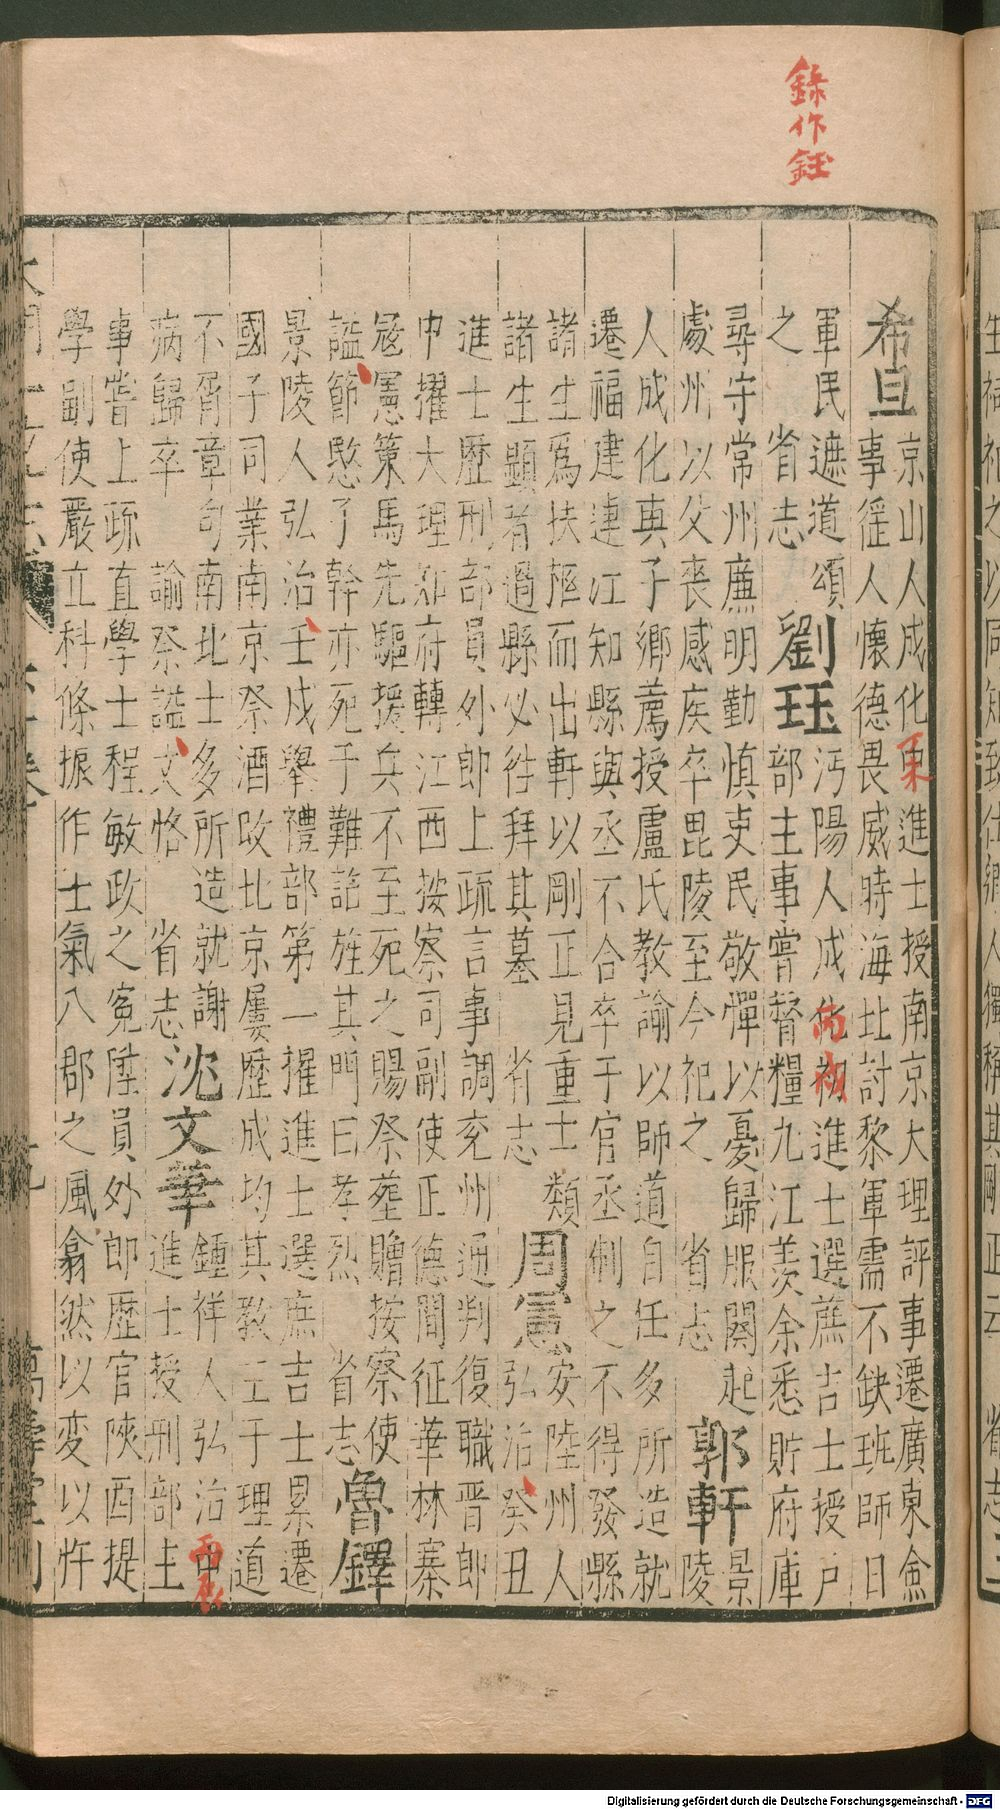 錄作鈺
希旦
京山人成化丁未進士授南京大理評事遷廣東僉
事徭人懷德畏威時海北討黎軍需不缺班師日
軍民遮道頌
之 省志
劉珏
沔陽人成化初丙戌進士選庶吉士授戶
部主事嘗督糧九江羨余悉貯府庫
尋守常州廉明勤慎吏民敬憚以憂歸服闋起
處州以父喪感疾卒毘陵至今祀之 省志
郭軒
景
陵
人成化典子鄉薦授盧氏教諭以師道自任多所造就
遷福建連江知縣與丞不合卒于官丞制之不得發縣
諸生爲扶柩而出軒以剛正見重士類
諸生顯者過縣必徃拜其墓 省志
周憲
安陸州人
弘治癸丑
進士歷刑部員外郎上疏言事調兗州通判復職晉郎
中擢大理知府轉江西按察司副使正德間征華林寨
寇憲策馬先驅援兵不至死之賜祭塟贈按察使
謚節愍子幹亦死于難詔旌其門曰孝烈 省志
魯鐸
景陵人弘治壬戌舉禮部第一擢進士選庶吉士累遷
國子司業南京祭酒改北京屢歷成均其教士于理道
不胥章句南北士多所造就謝
病歸卒 諭祭謚文恪 省志
沈文華
鍾祥人弘治丙辰
進士授刑部主
事嘗上疏直學士程敏政之冤陞員外郎歷官陝西提
學副使嚴立科條振作士氣八郡之風翕然以変以忤
Digitalisierung gefördert durch die Deutsche Forschungsgemeinschaft - DFG